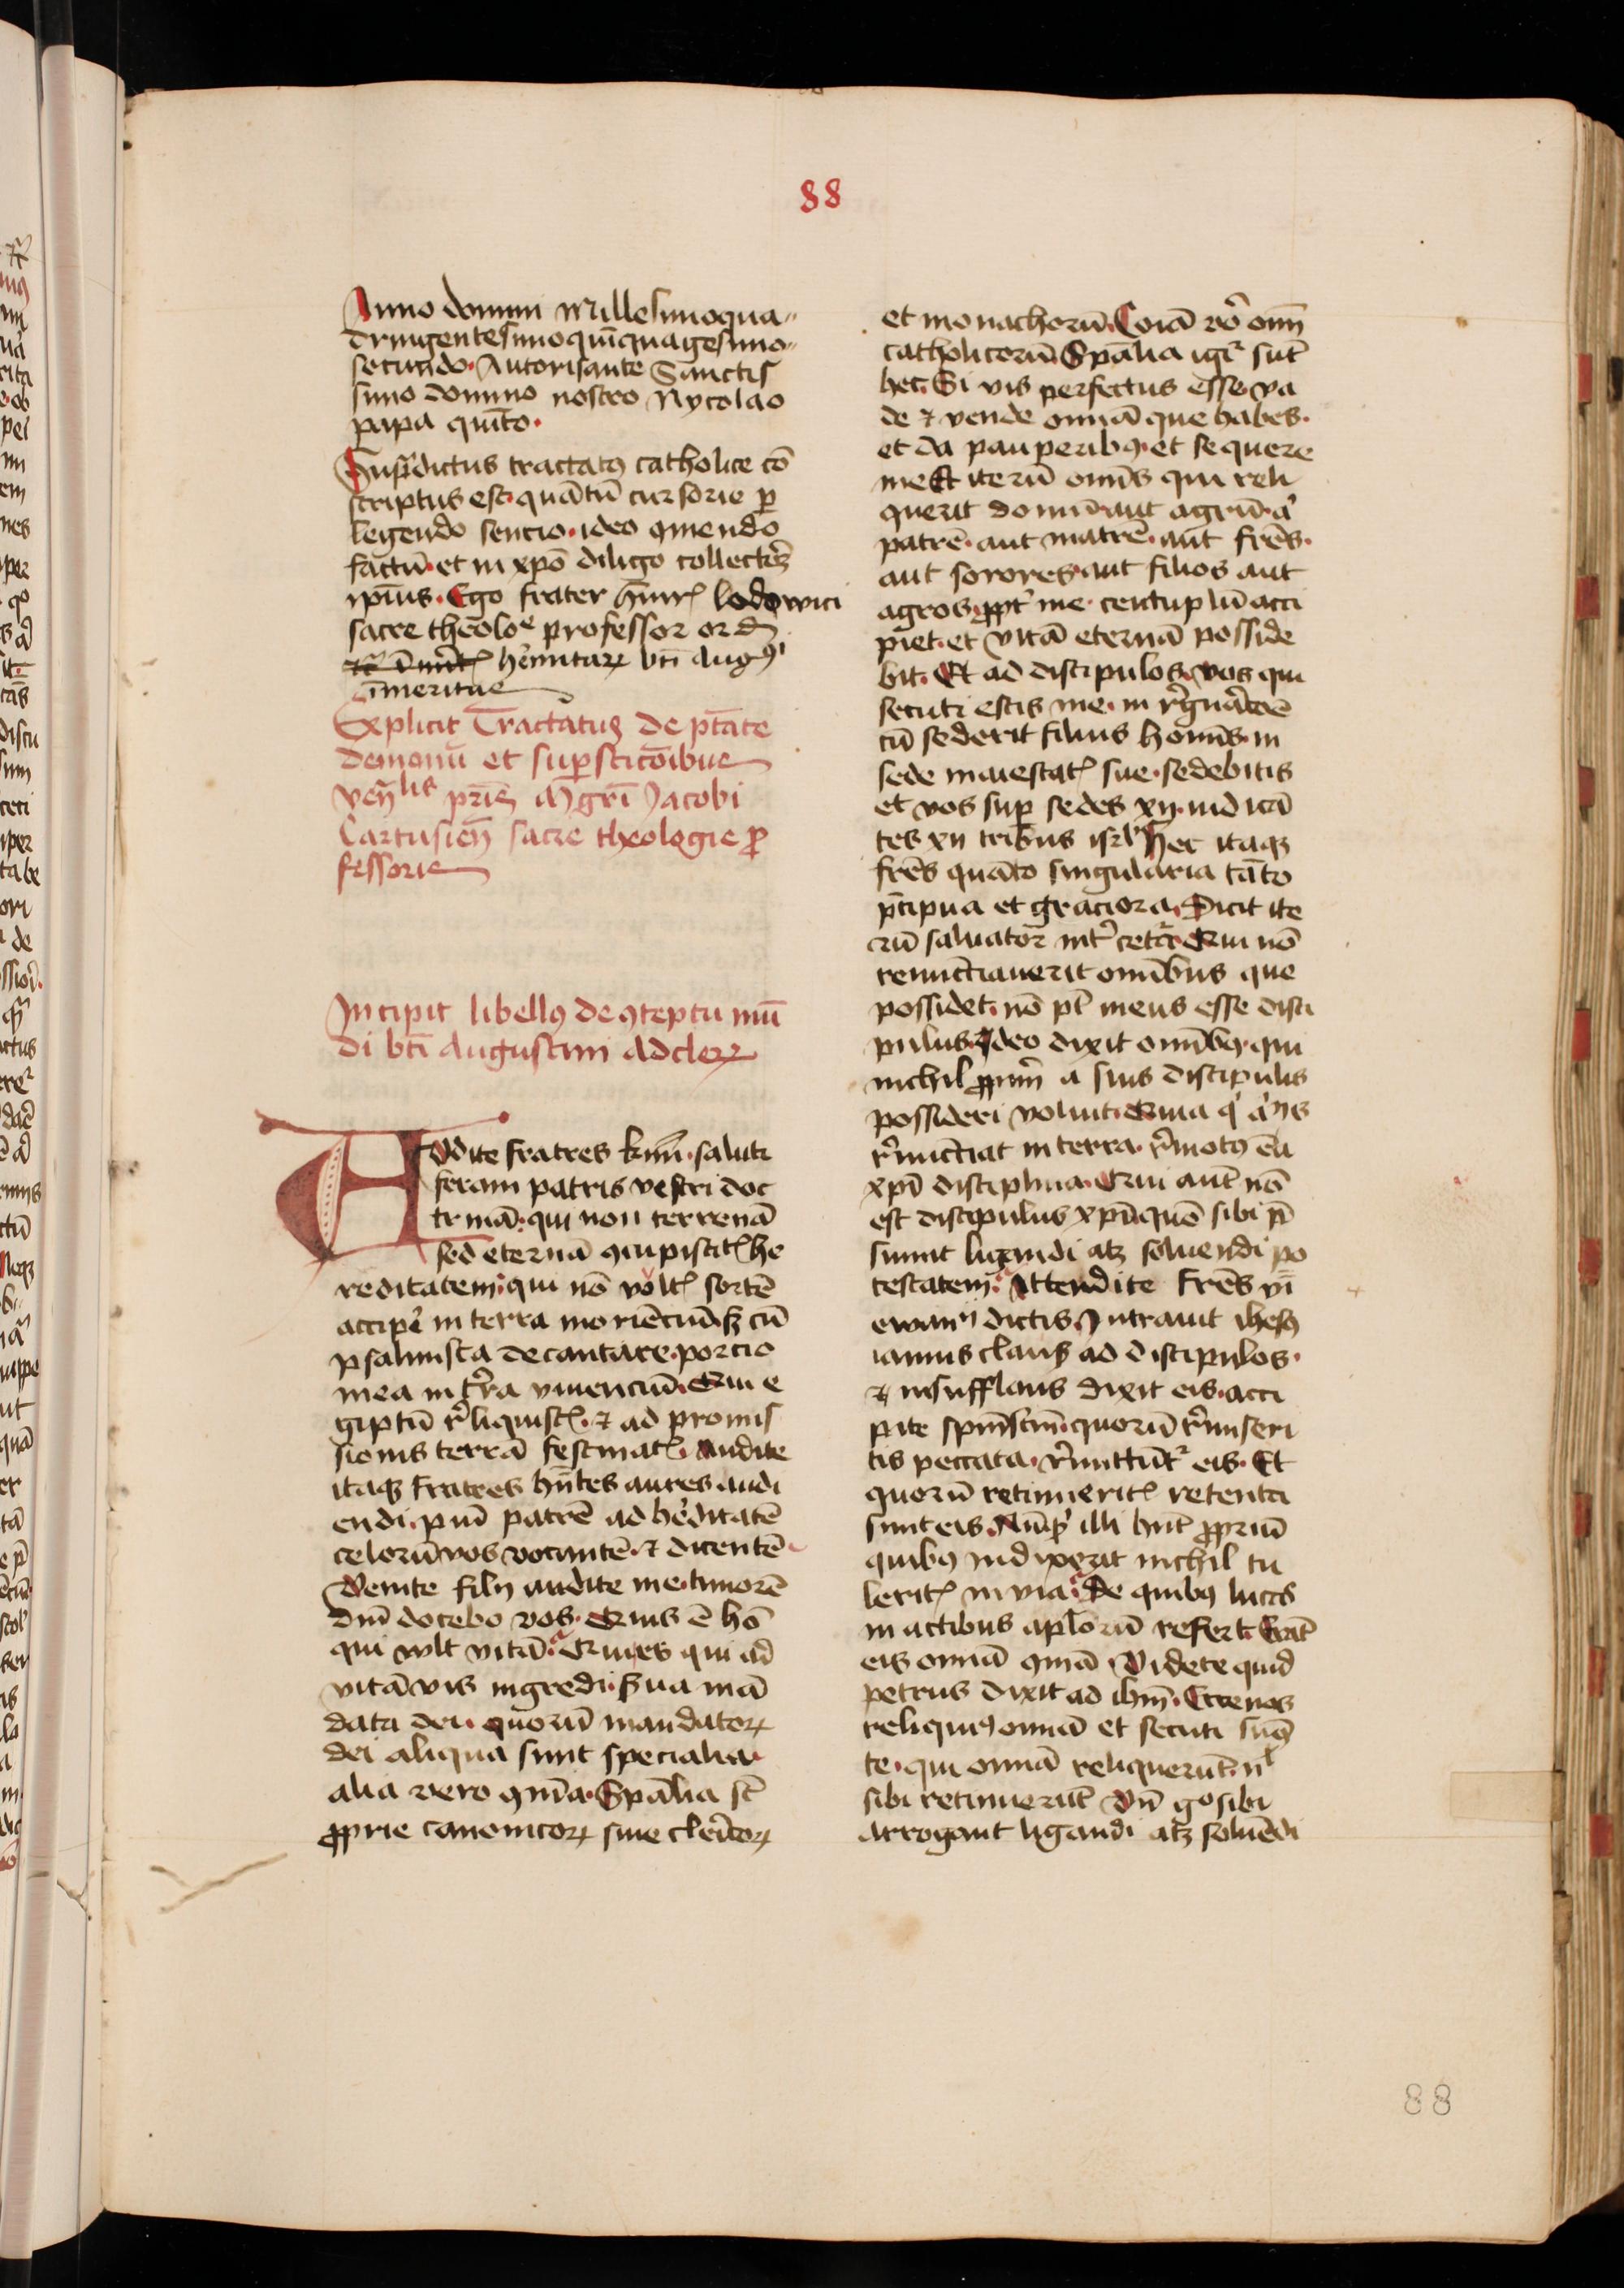 88
Anno domini Millesimoqua-
dringentesimoqui̅quagesimo-
secundo. Autorisante Sanctis
simo domino nostro Nycolao
papa qui̅to.
Sup̲dictus tractatꝯ catholice co̅
scriptus est. qua̅tu̅ cursorie ꝑ
legendo sencio. ideo ꝯmendo
factu̅. et in xp̅o diligo collecto̅
ip̅ius. Ego frater lodowici
sacre theolo^e professor ord
heremitaꝝ bt̅i Augꝯⁱ
i̅meritus
Explicit Tractatus de p̅tate
demonu̅ et sup̲stico̅ibus
ven^lis pr̅is Mgr̅i Jacobi
Cartusien̅ sacre theologie ꝓ
fessoris
Incipit libellꝯ de ꝯteptu mu̅
di bt̅i Augustini ad cleꝝ
Audite fratres k̅mi. saluti
feram patris vestri doc
trina̅. qui non terrena̅
sed eterna̅ ꝯcupiscitꝭ he
reditatem. qui no̅ voltꝭ sorte̅
accipe̓ in terra morie̅ciu̅. sꝫ cu̅
psalmista decantare. porcio
mea in t̓ra viuenciu̅. Qui e
giptu̅ r̓liquistꝭ. ⁊ ad promis
sionis terra̅ festinatꝭ. Audite
itaqꝫ fratres hn̅tes aures audi
endi. piu̅ patre̅ ad he̓ditate̅
celoru̅ vos vocante̅. ⁊ dicente̅
Venite filij audite me. timore̅
dn̅i docebo vos. Quis e̅ ho̅
qui wlt vita̅. Qui es qui ad
vita̅ vis ingredi. s̓ua ma̅
data dei. quoru̅ mandatoꝝ
dei aliqua sunt specialia
alia vero ꝯmu̅ia. Sp̅alia st̅
ꝓprie canonicoꝝ siue cler̅icoꝝ
et monachoru̅. Co̅ia v̓o om̅i
catholicoru̅. Sp̅alia igr̅ su̅t
hec. Si vis perfectus esse. va
de ⁊ vende om̅ia que habes.
et da pauperibꝯ. et sequere
me Et iteru̅ omn̅s qui reli
querit domu̅ aut agru̅. a̓
patre̅. aut matre̅. aut fr̅es.
aut sorores. aut filios aut
agros. ꝓpt̓ me. centuplu̅ acci
piet. et vita̅ eterna̅ posside
bit. Et ad discipulos. vos qui
secuti estis me. in r̓gn̅ac̅oe̅
cu̅ sederit filius homi̅s. in
sede maiestatꝭ sue. sedebitis
et vos sup̲ sedes xij. iudica̅
tes xij tribus isr̅l Hec itaqꝫ
fr̅es qua̅to singularia ta̅to
p̅cipua et graciora. Dicit ite
ru̅ saluator int̓ cet̓a Qui no̅
renuncciauerit omi̅bus que
possidet. no̅ p̅t meus esse disci
pulus. Ideo dixit omi̅bꝯ. qui
nichil ꝓpriu̅ a suis discipulis
possideri voluit. Quia
r̓nu̅cciat in terra. r̓motꝯ e̅ a
xp̅i disciplina. Qui aut̅ no̅
est discipulus xp̅i. quo̅ sibi p̅
sumit ligandi atqꝫ soluendi po
testatem. Attendite fr̅es
ewan^ij dictis. Intrauit ihesꝯ
ianuis clausꝭ ad discipulos.
⁊ insufflans dixit eis. acci
pite spm̅ sc̅m. quoru̅ r̓miseri
tis peccata. r̓mittu̅t^r eis. Et
quoru̅ retinueritꝭ retenta
sunt eis. Nu̅qͥ illi hn̅t ꝓpriu̅
quibꝯ indixerat nichil tu
leritꝭ in via. De quibꝯ lucas
in actibus aplo̅ru̅ refert. Era̅t
eis om̅ia ꝯmu̅ia. Videte quid
petrus dixit ad ihm̅. Ecce nos
reliquimꝯ om̅ia et secuti sumꝯ
te. qui om̅ia reliqueru̅t. n^l
sibi retinueru̅t Vn̅ g^o sibi
arrogant ligandi atqꝫ solue̅di
88